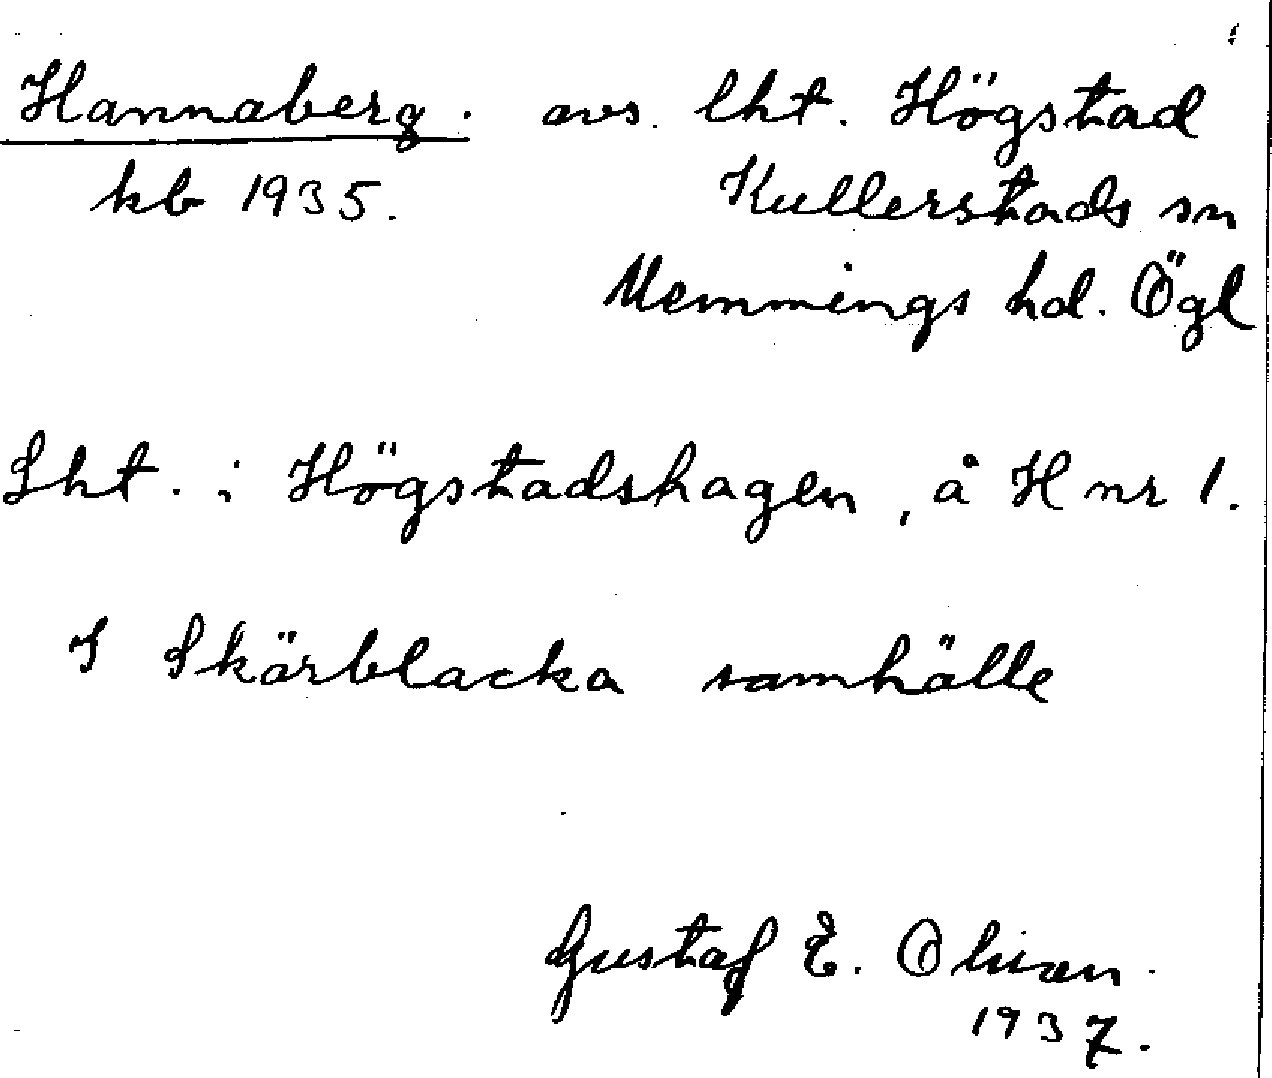 Hannaberg. avs. lht. Högstad
kb 1935. Kullerstads sn
Memmings hd. Ögl
Lht. i Högstadshagen, å H nr 1.
I Skärblacka samhälle
Gustaf E. Olivan.
1937.